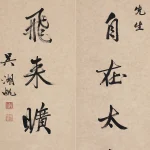 先生
自在太
飛来曠
吳湖帆